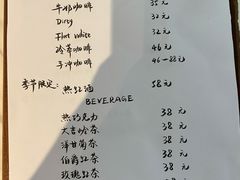 牛奶咖啡 35元
Dirty 32元
Flat White 32元
冷萃咖啡 46元
手冲咖啡 46-88元
季节限定: 热红酒 58元
BEVERAGE
热巧克力 38元
大吉岭茶 38元
洋甘菊茶 38元
伯爵红茶 38元
玫瑰红茶 38元